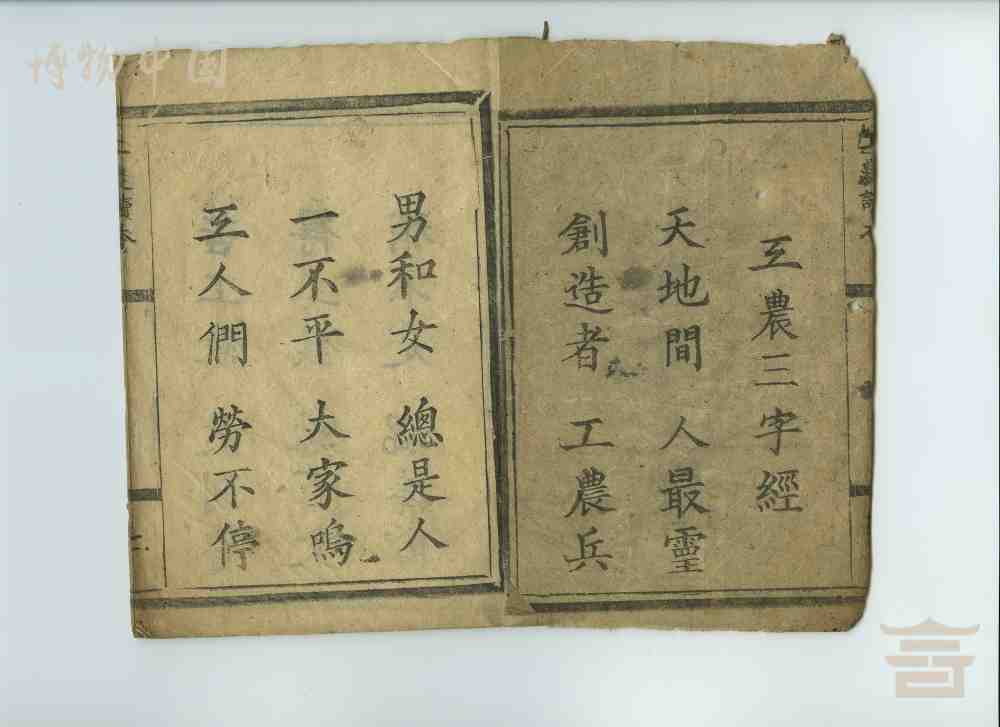 博物中国
工農讀本
工農三字經
天地間 人最靈
創造者 工農兵
男和女 總是人
一不平 大家鳴
工人們 勞不停
二